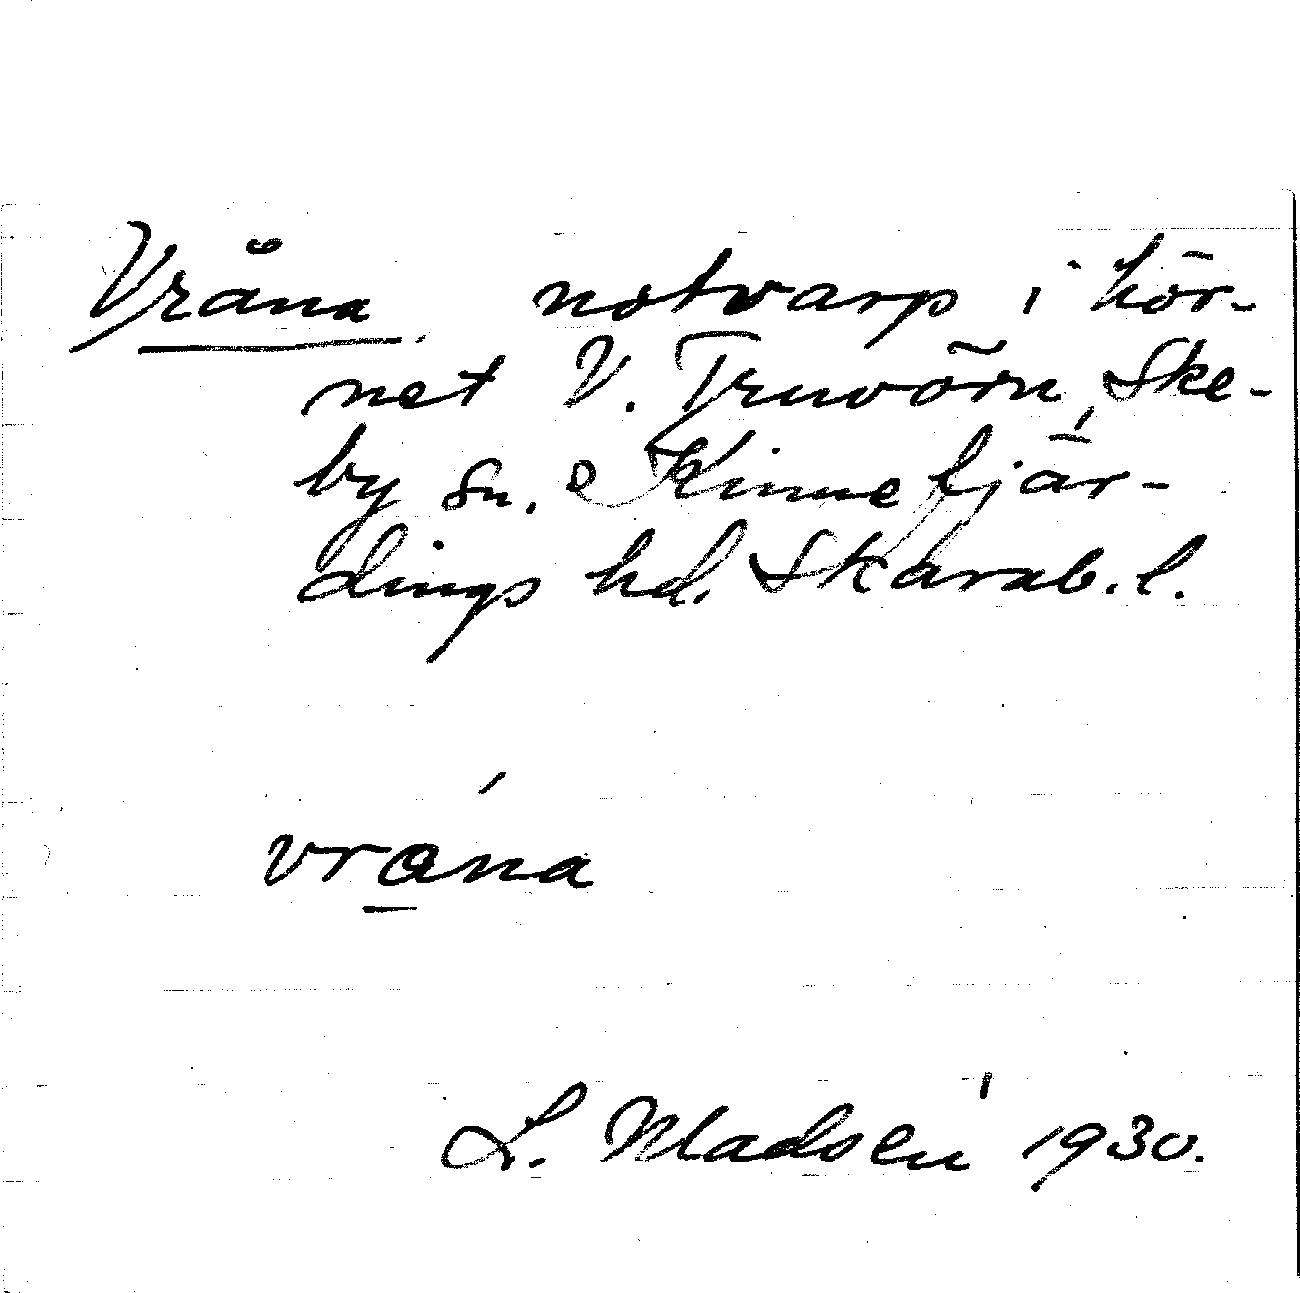 Vråna notvarp i hör-
net V. Truvörn, Ske-
by sn. Kinnefjär-
dings hd. Skarab. l.
vrana
L. Madsén 1930.